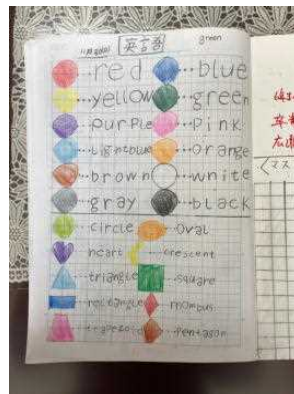 英言吾
green
red blue
yellow green
purple pink
Lightblue orange
brown white
gray black
circle oval
heart crescent
triangle square
rectangle rhombus
trapezoid pentagon